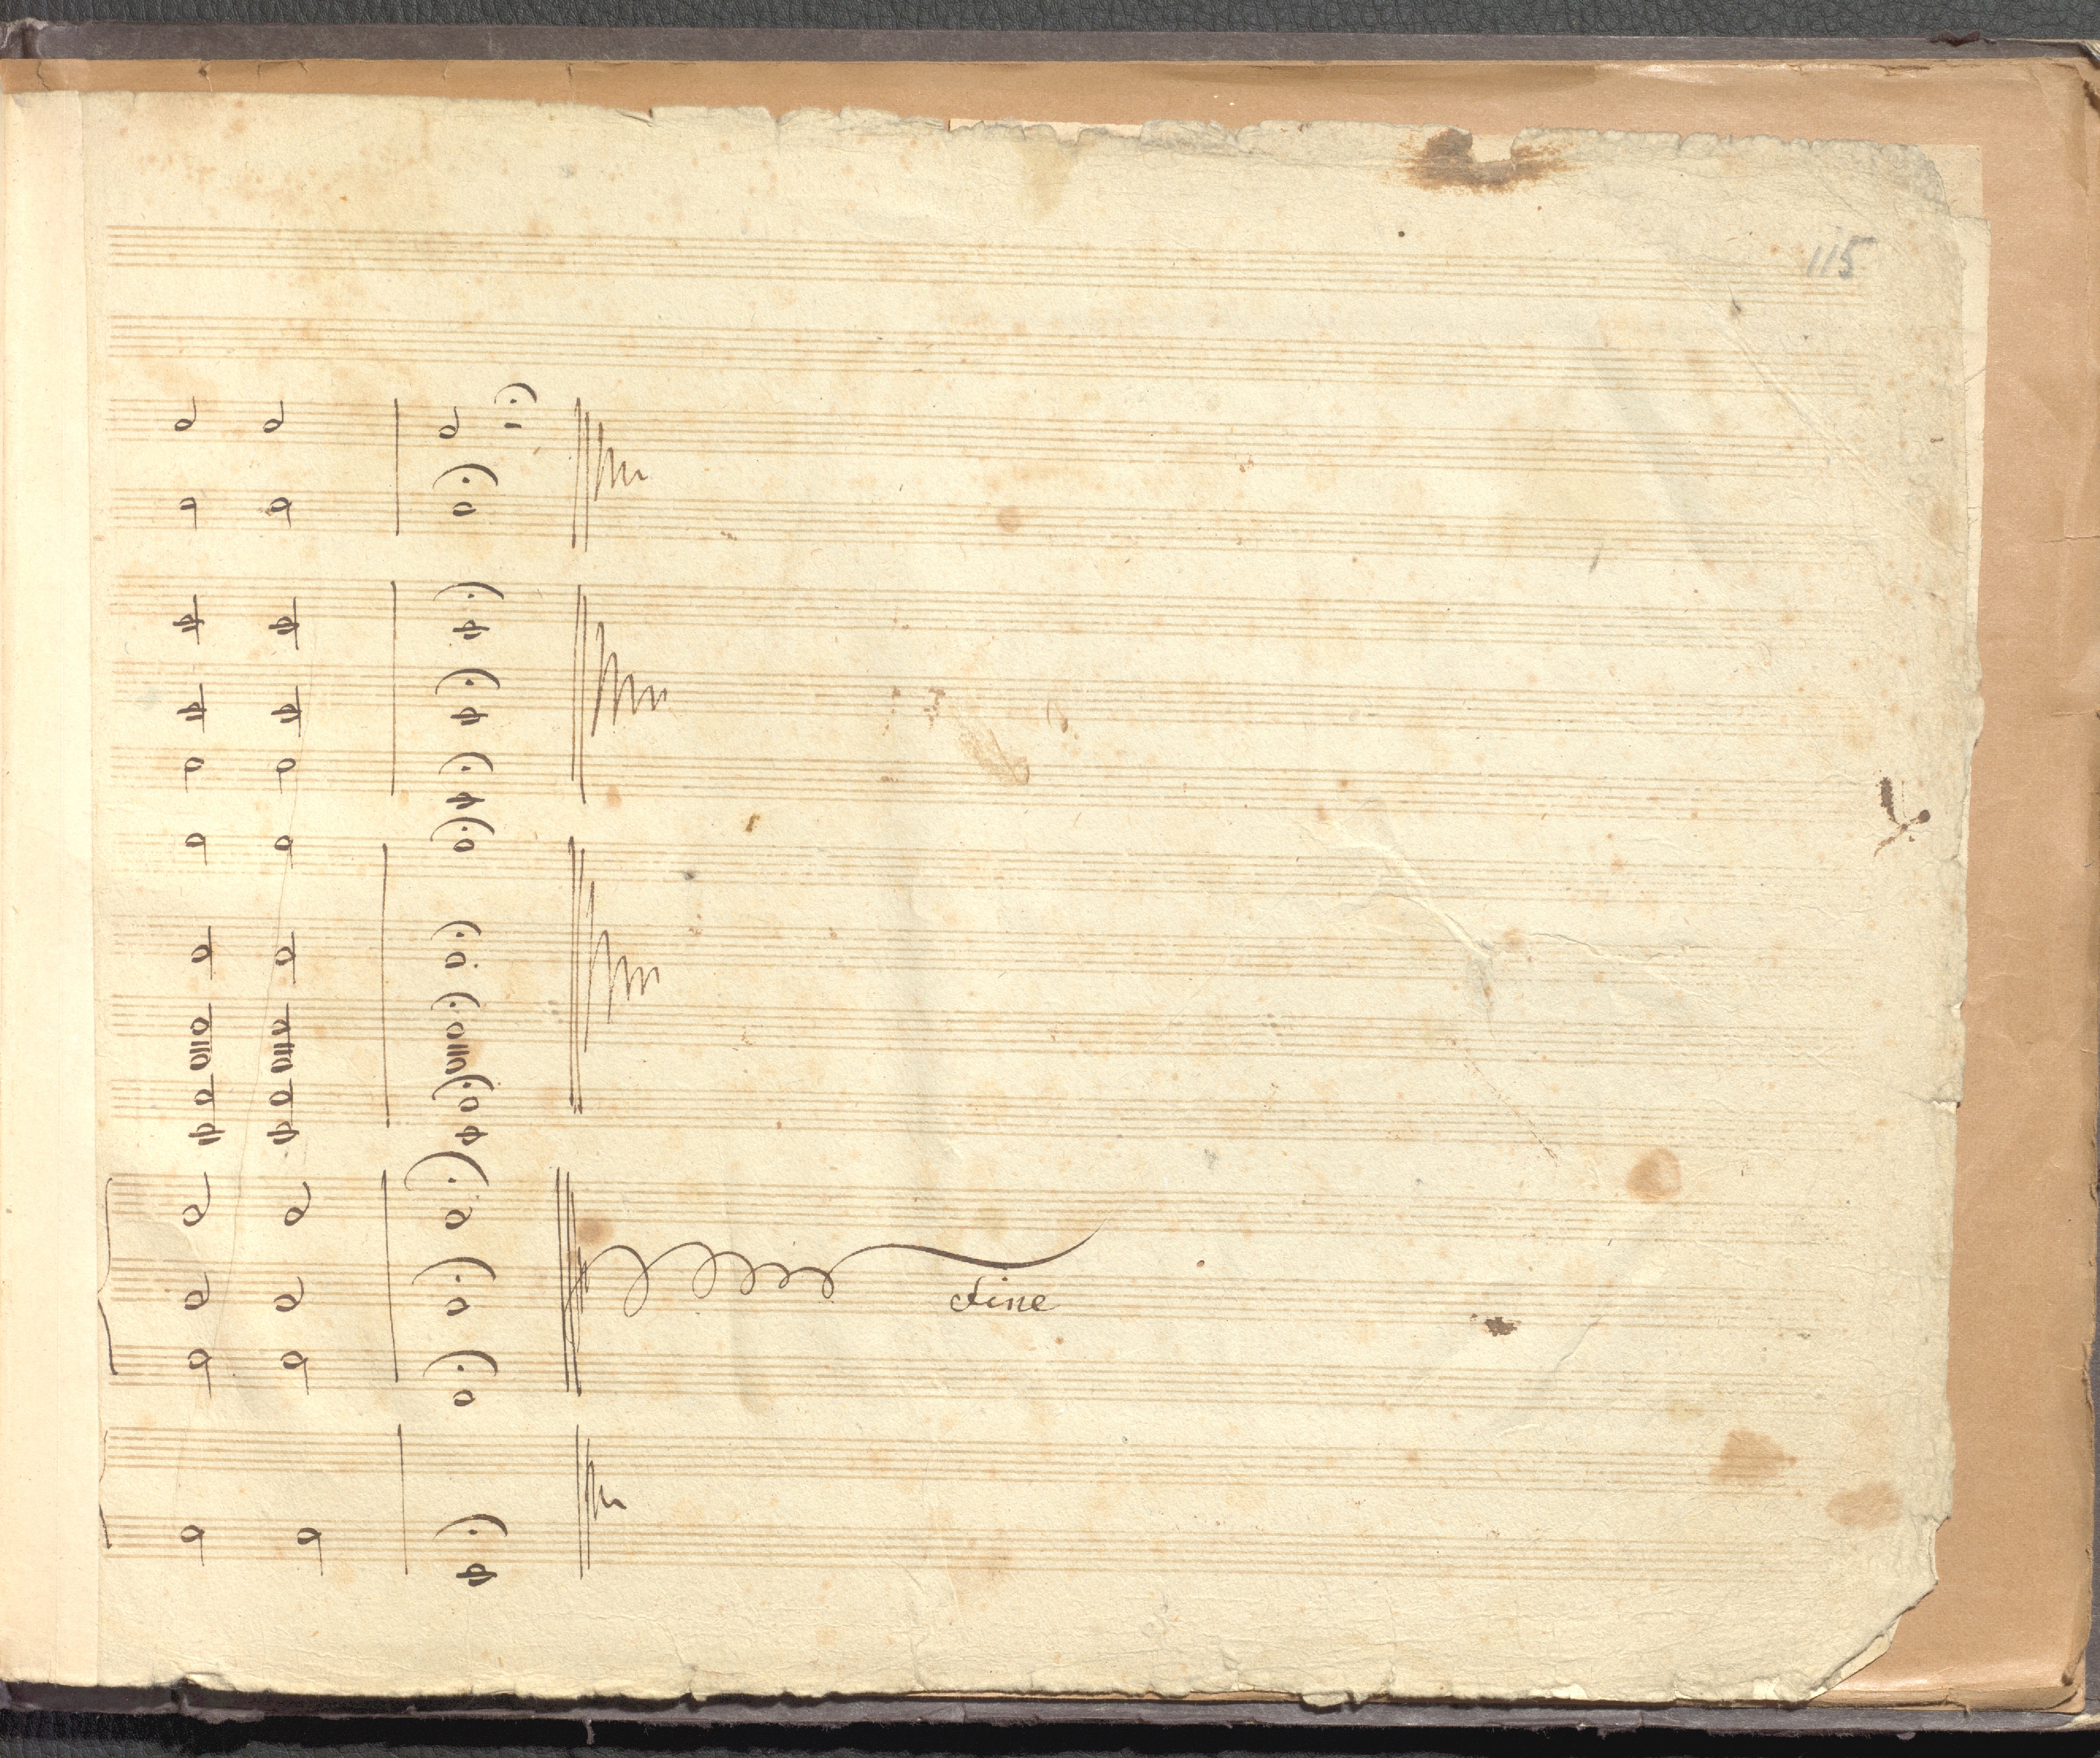 115
Fine